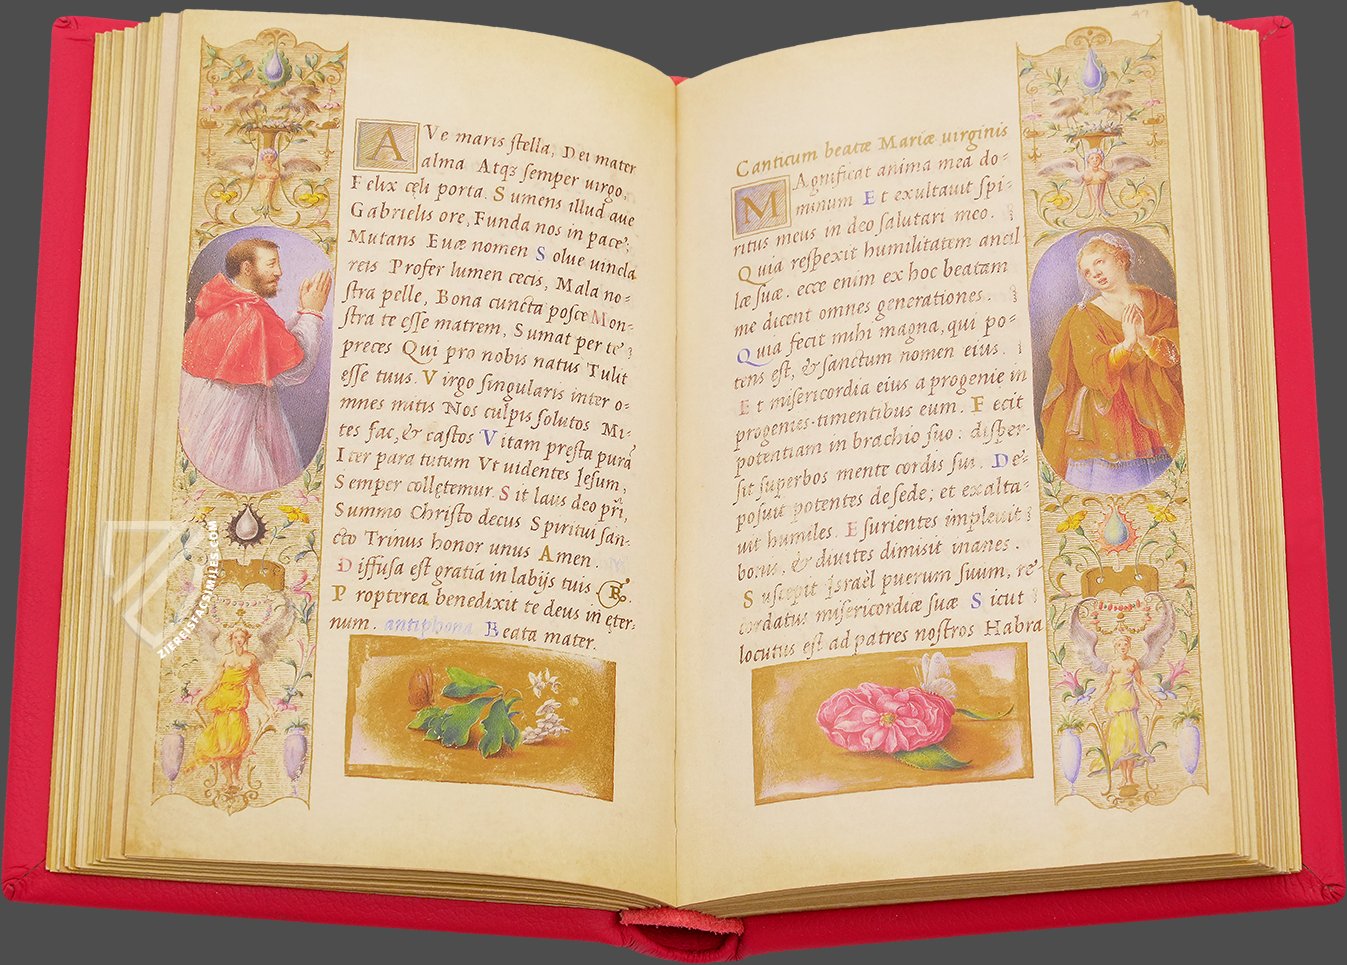 AVe maris stella, Dei mater
alma Atqꝫ semper uirgo,
Felix cęli porta. Sumens illud aue
Gabrielis ore, Funda nos in pace,
Mutans Euæ nomen Solue uincla
reis Profer lumen cecis, Mala no-
stra pelle, Bona cuncta posce Mon-
stra te esse matrem, Sumat per te
preces Qui pro nobis natus Tulit
esse tuus. Virgo singularis inter o-
mnes mitis Nos culpis solutos Mi-
tes fac, & castos Vitam presta purā
Iter para tutum Vt uidentes Iesum,
Semper collętemur. Sit laus deo pr̄i,
Summo Christo decus Spiritui san-
cto Trinus honor unus Amen.
Diffusa est gratia in labijs tuis ℟.
Propterea benedixit te deus in ęter-
num. antiphona Beata mater.
47
Canticum beatæ Mariæ uirginis
MAgnificat anima mea do-
minum Et exultauit spi-
ritus meus in deo salutari meo.
Quia respexit humilitatem ancil
læ suæ. ecce enim ex hoc beatam
me dicent omnes generationes.
Quia fecit mihi magna, qui po-
tens est, & sanctum nomen eius.
Et misericordia eius a progenie in
progenies timentibus eum. Fecit
potentiam in brachio suo: disper-
sit superbos mente cordis sui. De-
posuit potentes de sede; et exalta-
uit humiles. Esurientes impleuit
bonis, & diuites dimisit inanes.
Suscepit Israël puerum suum, re-
cordatus misericordiæ suæ Sicut
locutus est ad patres nostros Habra
ZIEREISFACSIMILES.COM